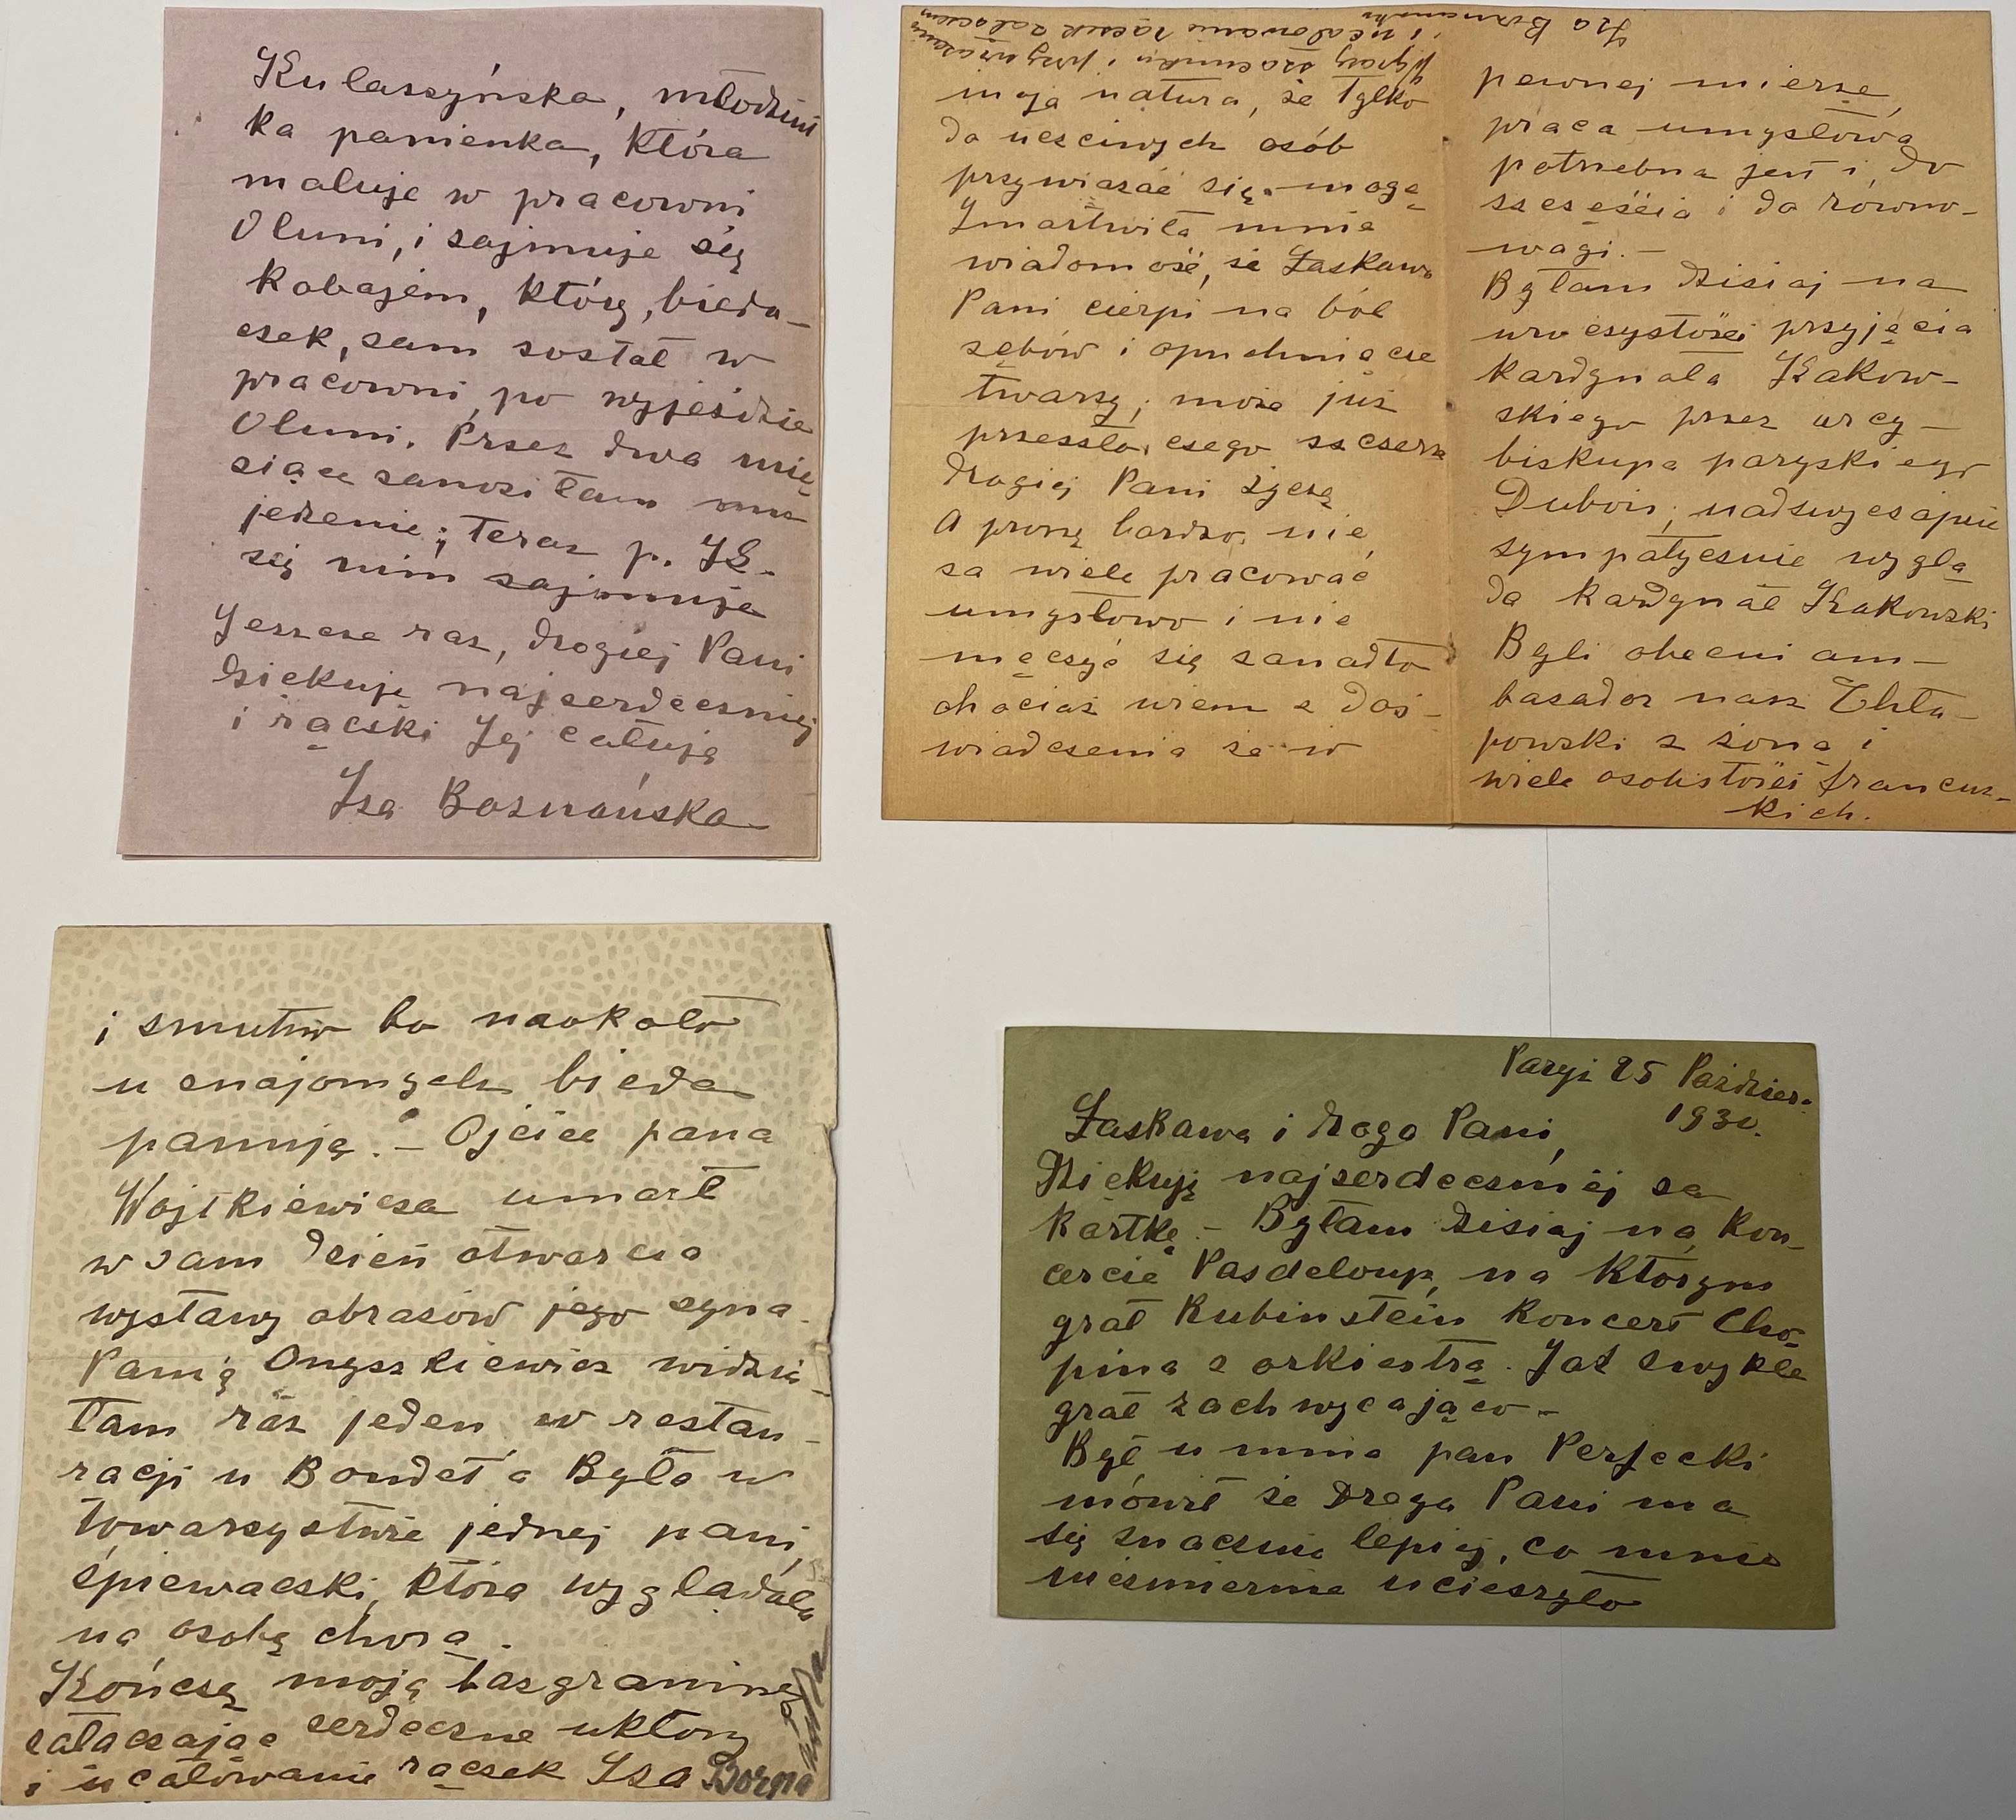 Kulaszyńska, młodziut
ka panienka, która
maluje w pracowni
Oluni, i zajmuje się
Kobajem, który, bieda-
czek, sam został w
pracowni po wyjeździe
Oluni. Przez dwa mię
siące zanosiłam mu
jedzenie; teraz p. K.
się nim zajmuje
Jeszcze raz, drogiej Pani
dziękuję najserdeczniej
i rączki Jej całuję
Iza Boznańska
moja natura, że tylko
do uczciwych osób
przywiązać się mogę
Zmartwiła mnie
wiadomość, że Łaskawa
Pani cierpi na ból
zębów i opuchnięcie
twarzy, może już
przeszło, czego szczerze
drogiej Pani życzę
A proszę bardzo, nie
za wiele pracować
umysłowo i nie
męczyć się zanadto
chociaż wiem z doś-
wiadczenia że w
Wyrazy szacunku i przywiązania
i ucałowanie rączek załączam
Iza Boznańska
pewnej mierze,
praca umysłowa
potrzebna jest i do
szczęścia i do równo-
wagi. -
Byłam dzisiaj na
uroczystości przyjęcia
Kardynała Kakow-
skiego przez arcy-
biskupa paryskiego
Dubois, nadzwyczajnie
sympatycznie wyglą
da Kardynał Kakowski
Byli obecni am-
basador nasz Chła-
powski z żoną i
wiele osobistości francus-
kich.
i smutno bo naokoło
u znajomych bieda
panuje. - Ojciec pana
Wojtkiewicza umarł
w sam dzień otwarcia
wystawy obrazów jego syna.
Panią Onyszkiewicz widzia-
łam raz jeden w restau-
racji u Boudet'a Była w
towarzystwie jednej pani,
śpiewaczki, która wyglądała
na osobę chorą.
Kończę moją bazgraninę
załączając serdeczne ukłony
i ucałowanie rączek Iza Boznańska
Paryż 25 Paździer.
1930.
Łaskawa i droga Pani,
Dziękuję najserdeczniej za
Kartkę. - Byłam dzisiaj na Kon-
cercie Pasdeloup, na którym
grał Rubinstein Koncert Cho-
pina z orkiestrą. Jak zwykle
grał zachwycająco -
Był u mnie pan Perfecki
mówił że Droga Pani ma
się znacznie lepiej, co mnie
niezmiernie ucieszyło